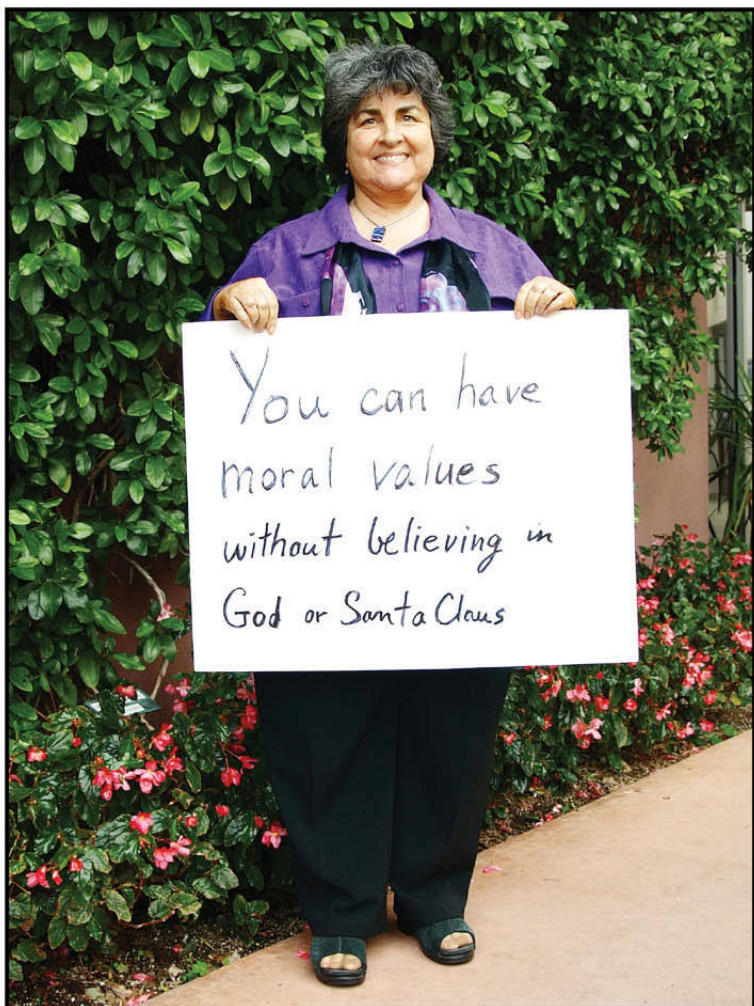 You can have
moral values
without believing in
God or Santa Claus